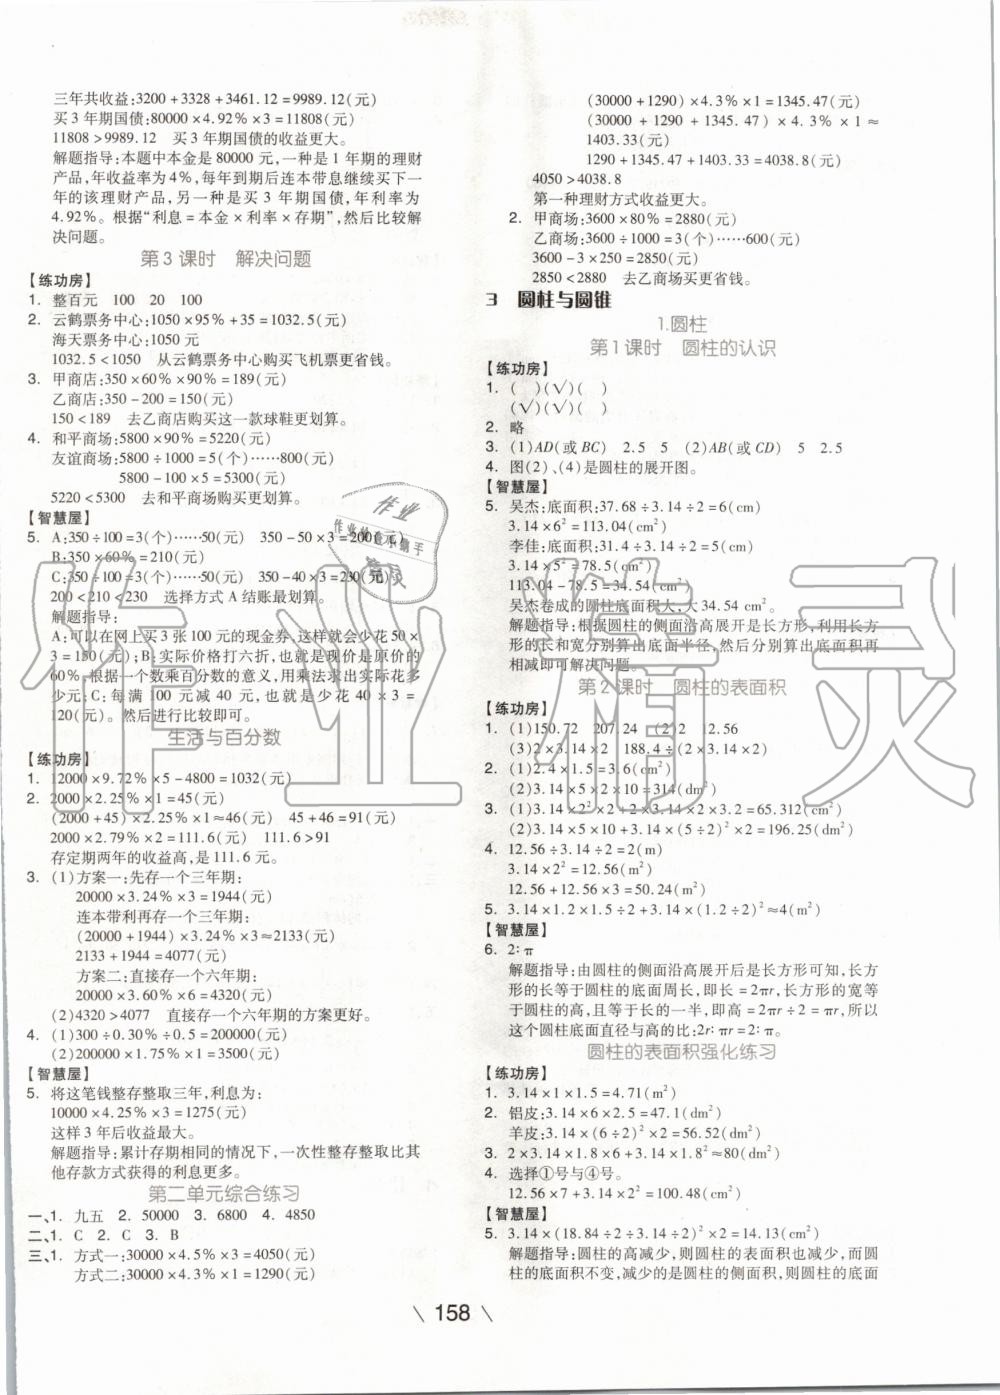 三年共收益:3200+3328+3461.12=9989.12(元)
买3年期国债:80000×4.92%×3=11808(元)
11808>9989.12 买3年期国债的收益更大。
解题指导:本题中本金是80000元,一种是1年期的理财
产品,年收益率为4%,每年到期后连本带息继续买下一
年的该理财产品,另一种是买3年期国债,年利率为
4.92%。根据“利息=本金×利率×存期”,然后比较解
决问题。
第3课时 解决问题
【练功房】
1. 整百元 100 20 100
2. 云鹤票务中心:1050×95%+35=1032.5(元)
海天票务中心:1050元
1032.5<1050 从云鹤票务中心购买飞机票更省钱。
3. 甲商店:350×60%×90%=189(元)
乙商店:350-200=150(元)
150<189 去乙商店购买这一款球鞋更划算。
4. 和平商场:5800×90%=5220(元)
友谊商场:5800÷1000=5(个)……800(元)
5800-100×5=5300(元)
5220<5300 去和平商场购买更划算。
【智慧屋】
5. A:350÷100=3(个)……50(元) 350-50×3=200(元)
B:350×60%=210(元)
C:350÷100=3(个)……50(元) 350-40×3=230(元)
200<210<230 选择方式A结账最划算。
解题指导:
A:可以在网上买3张100元的现金券,这样就会少花50×
3=150(元);B:实际价格打六折,也就是现价是原价的
60%,根据一个数乘百分数的意义,用乘法求出实际花多
少元;C:每满100元减40元,也就是少花40×3=
120(元)。然后进行比较即可。
生活与百分数
【练功房】
1. 12000×9.72%×5-4800=1032(元)
2. 2000×2.25%×1=45(元)
(2000+45)×2.25%×1≈46(元) 45+46=91(元)
2000×2.79%×2=111.6(元) 111.6>91
存定期两年的收益高,是111.6元。
3. (1)方案一:先存一个三年期:
20000×3.24%×3=1944(元)
连本带利再存一个三年期:
(20000+1944)×3.24%×3≈2133(元)
2133+1944=4077(元)
方案二:直接存一个六年期:
20000×3.60%×6=4320(元)
(2)4320>4077 直接存一个六年期的方案更好。
4. (1)300÷0.30%÷0.5=200000(元)
(2)200000×1.75%×1=3500(元)
【智慧屋】
5. 将这笔钱整存整取三年,利息为:
10000×4.25%×3=1275(元)
这样3年后收益最大。
解题指导:累计存期相同的情况下,一次性整存整取比其
他存款方式获得的利息更多。
第二单元综合练习
一、1. 九五 2. 50000 3. 6800 4. 4850
二、1. C 2. C 3. B
三、1. 方式一:30000×4.5%×3=4050(元)
方式二:30000×4.3%×1=1290(元)
(30000+1290)×4.3%×1=1345.47(元)
(30000+1290+1345.47)×4.3%×1≈
1403.33(元)
1290+1345.47+1403.33=4038.8(元)
4050>4038.8
第一种理财方式收益更大。
2. 甲商场:3600×80%=2880(元)
乙商场:3600÷1000=3(个)……600(元)
3600-3×250=2850(元)
2850<2880 去乙商场买更省钱。
3 圆柱与圆锥
1.圆柱
第1课时 圆柱的认识
【练功房】
1. ( )(√)( )
(√)(√)( )
2. 略
3. (1)AD(或BC) 2.5 5 (2)AB(或CD) 5 2.5
4. 图(2)、(4)是圆柱的展开图。
【智慧屋】
5. 吴杰:底面积:37.68÷3.14÷2=6(cm)
3.14×6²=113.04(cm²)
李佳:底面积:31.4÷3.14÷2=5(cm)
3.14×5²=78.5(cm²)
113.04-78.5=34.54(cm²)
吴杰卷成的圆柱底面积大,大34.54 cm²。
解题指导:根据圆柱的侧面沿高展开是长方形,利用长方
形的长和宽分别算出底面半径,然后分别算出底面积再
相减即可解决问题。
第2课时 圆柱的表面积
【练功房】
1. (1)150.72 207.24 (2)2 12.56
(3)2×3.14×2 188.4÷(2×3.14×2)
2. (1)2.4×1.5=3.6(cm²)
(2)3.14×5×2×10=314(dm²)
3. (1)3.14×2²×2+3.14×2×2×3.2=65.312(cm²)
(2)3.14×5×10+3.14×(5÷2)²×2=196.25(dm²)
4. 12.56÷3.14÷2=2(m)
3.14×2²=12.56(m²)
12.56+12.56×3=50.24(m²)
5. 3.14×1.2×1.5÷2+3.14×(1.2÷2)²≈4(m²)
【智慧屋】
6. 2∶π
解题指导:由圆柱的侧面沿高展开后是长方形可知,长方
形的长等于圆柱的底面周长,即长=2πr,长方形的宽等
于圆柱的高,且等于长的一半,即高=2πr÷2=πr,所以
这个圆柱底面直径与高的比:2r∶πr=2∶π。
圆柱的表面积强化练习
【练功房】
1. 3.14×1×1.5=4.71(m²)
2. 铝皮:3.14×6×2.5=47.1(dm²)
羊皮:3.14×(6÷2)²×2=56.52(dm²)
3. 2×3.14×1.8×6+3.14×1.8²≈80(dm²)
4. 选择①号与④号。
12.56×7+3.14×2²=100.48(cm²)
【智慧屋】
5. 3.14×(18.84÷2÷3.14÷2)²×2=14.13(cm²)
解题指导:圆柱的高减少,则圆柱的表面积也减少,而圆
柱的底面积不变,减少的是圆柱的侧面积,则圆柱的底面
\ 158 \
作业精灵